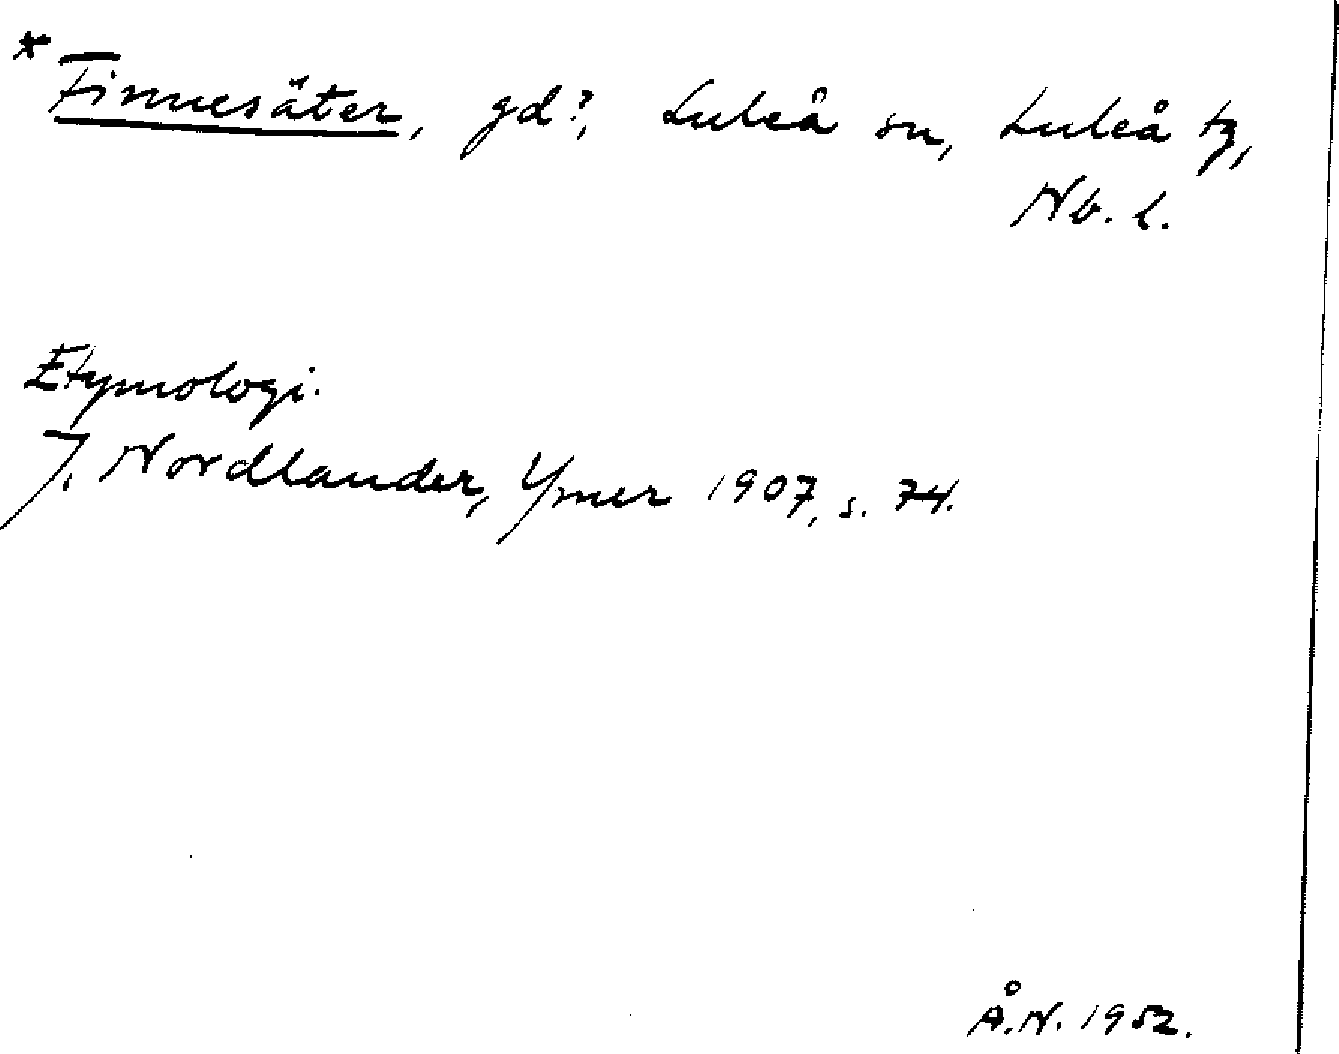 * Finnesäter, gd?, Luleå sn, Luleå tg,
Nb. l.
Etymologi.
J. Nordlander, Ymer 1907, s. 74.
Å.N. 1952.